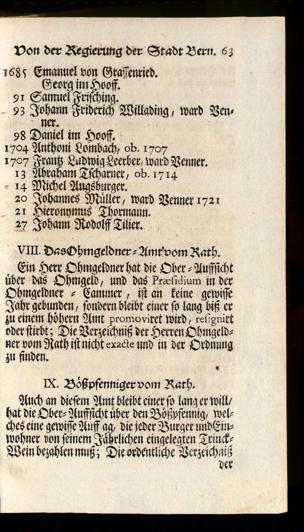 Von der Regierung der Stadt Bern. 63
1685 Emanuel von Graffenried.
Georg im Hooff.
91 Samuel Frisching.
93 Johann Friderich Willading, ward Ven-
ner.
98 Daniel im Hooff.
1704 Anthoni Lombach, ob. 1707
1707 Frantz Ludwig Leerber, ward Venner.
13 Abraham Tscharner, ob. 1714
14 Michel Augsburger.
20 Johannes Müller, ward Venner 1721
21 Hieronymus Thormann.
27 Johann Rodolff Tilier.
VIII. Das Ohmgeldner-Amt vom Rath.
Ein Herr Ohmgeldner hat die Ober-Auffsicht
über das Ohmgeld, und das Præsidium in der
Ohmgeldner-Cammer, ist an keine gewisse
Jahr gebunden, sondern bleibt einer so lang biß er
zu einem höhern Amt promoviret wird, resignirt
oder stirbt; Die Verzeichniß der Herren Ohmgeld-
ner vom Rath ist nicht exacte und in der Ordnung
zu finden.
IX. Bößpfenniger vom Rath.
Auch an diesem Amt bleibt einer so lang er will/
hat die Ober-Auffsicht über den Bößpfennig, wel-
ches eine gewisse Auff ag, die jeder Burger und Ein-
wohner von seinem Jährlichen eingelegten Trinck-
Wein bezahlen muß; Die ordentliche Verzeichniß
der